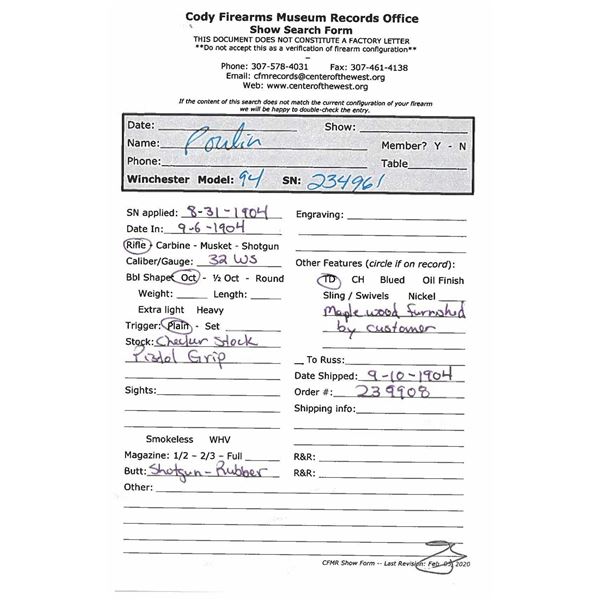 Cody Firearms Museum Records Office
Show Search Form
THIS DOCUMENT DOES NOT CONSTITUTE A FACTORY LETTER
**Do not accept this as a verification of firearm configuration**
Phone: 307-578-4031 Fax: 307-461-4138
Email: cfmrecords@centerofthewest.org
Web: www.centerofthewest.org
If the content of this search does not match the current configuration of your firearm
we will be happy to double-check the entry.
Date: Show:
Name: Poulin Member? Y - N
Phone: Table
Winchester Model: 94 SN: 234961
SN applied: 8-31-1904 Engraving:
Date In: 9-6-1904
Rifle - Carbine - Musket - Shotgun
Caliber/Gauge: 32 WS Other Features (circle if on record):
Bbl Shape: Oct - ½ Oct - Round TD CH Blued Oil Finish
Weight: Length: Sling / Swivels Nickel
Extra light Heavy Maple wood furnished
Trigger: Plain - Set by customer
Stock: Checker Stock
Pistol Grip To Russ:
Date Shipped: 9-10-1904
Sights: Order #: 239908
Shipping info:
Smokeless WHV
Magazine: 1/2 - 2/3 - Full R&R:
Butt: Shotgun - Rubber R&R:
Other:
CFMR Show Form -- Last Revision: Feb. 03, 2020